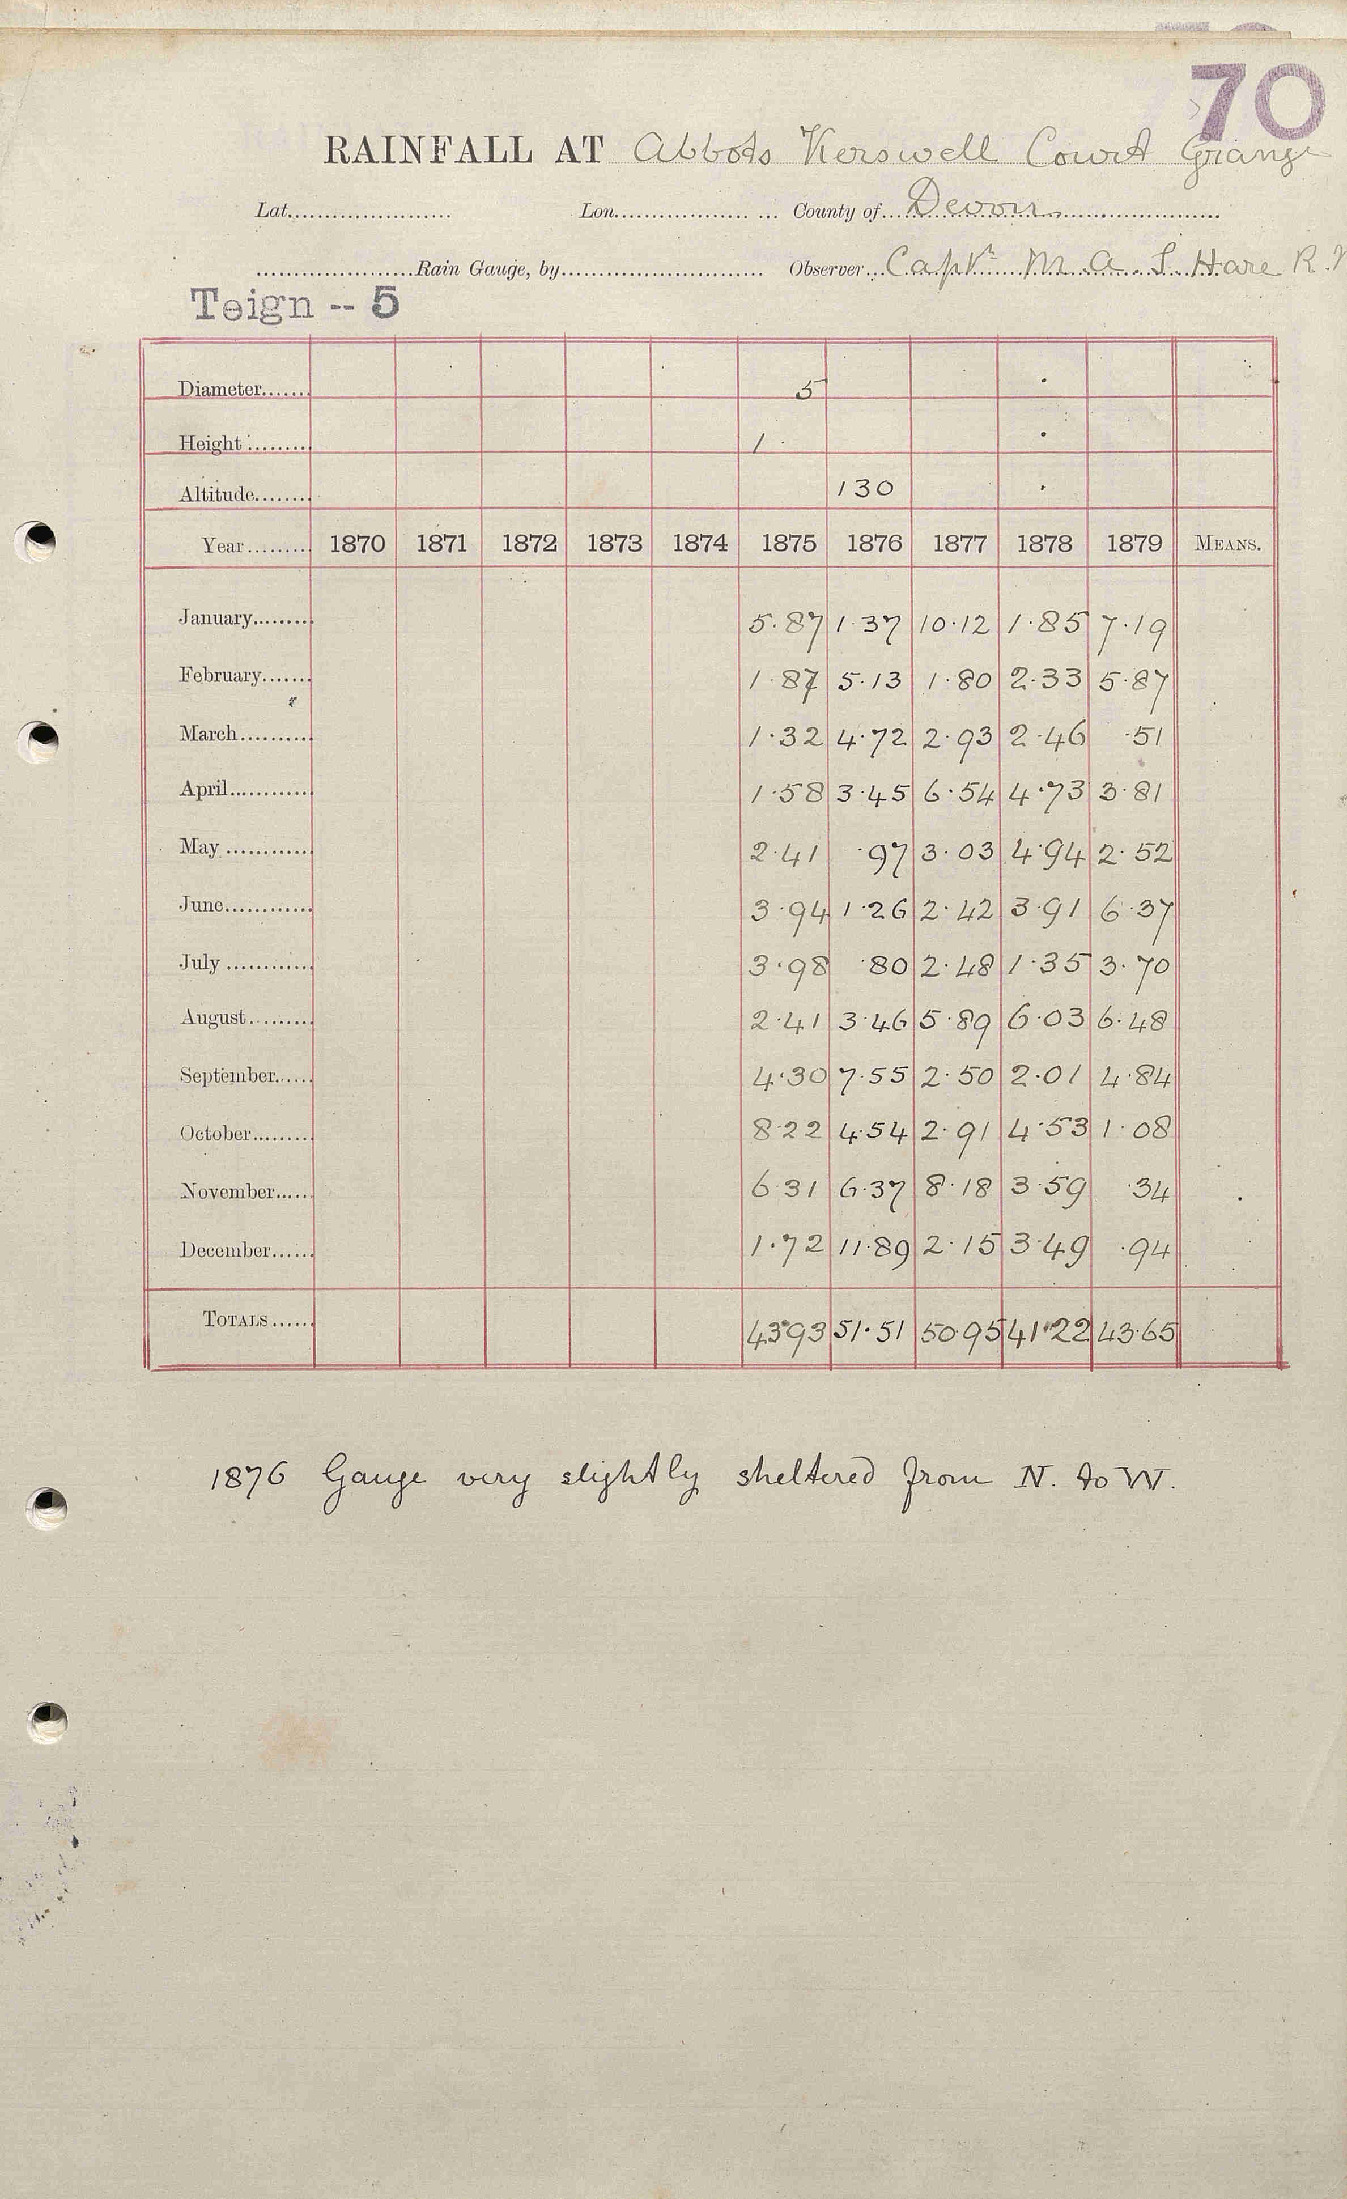 70
RAINFALL AT Abbots Kerswell Court Grange
Lat...................... Lon.................. ... County of...Devon..........................
......................Rain Gauge, by............................ Observer...Capt. M. A. S. Hare R.N
Teign -- 5
Diameter....... 5
Height ......... 1
Altitude........ 130
Year......... 1870 1871 1872 1873 1874 1875 1876 1877 1878 1879 MEANS.
January......... 5.87 1.37 10.12 1.85 7.19
February....... 1.87 5.13 1.80 2.33 5.87
March.......... 1.32 4.72 2.93 2.46 .51
April............ 1.58 3.45 6.54 4.73 3.81
May ............ 2.41 .97 3.03 4.94 2.52
June............ 3.94 1.26 2.42 3.91 6.37
July ............ 3.98 .80 2.48 1.35 3.70
August......... 2.41 3.46 5.89 6.03 6.48
September...... 4.30 7.55 2.50 2.01 4.84
October......... 8.22 4.54 2.91 4.53 1.08
November...... 6.31 6.37 8.18 3.59 .34
December...... 1.72 11.89 2.15 3.49 .94
TOTALS...... 43.93 51.51 50.95 41.22 43.65
1876 Gauge very slightly sheltered from N. to W.